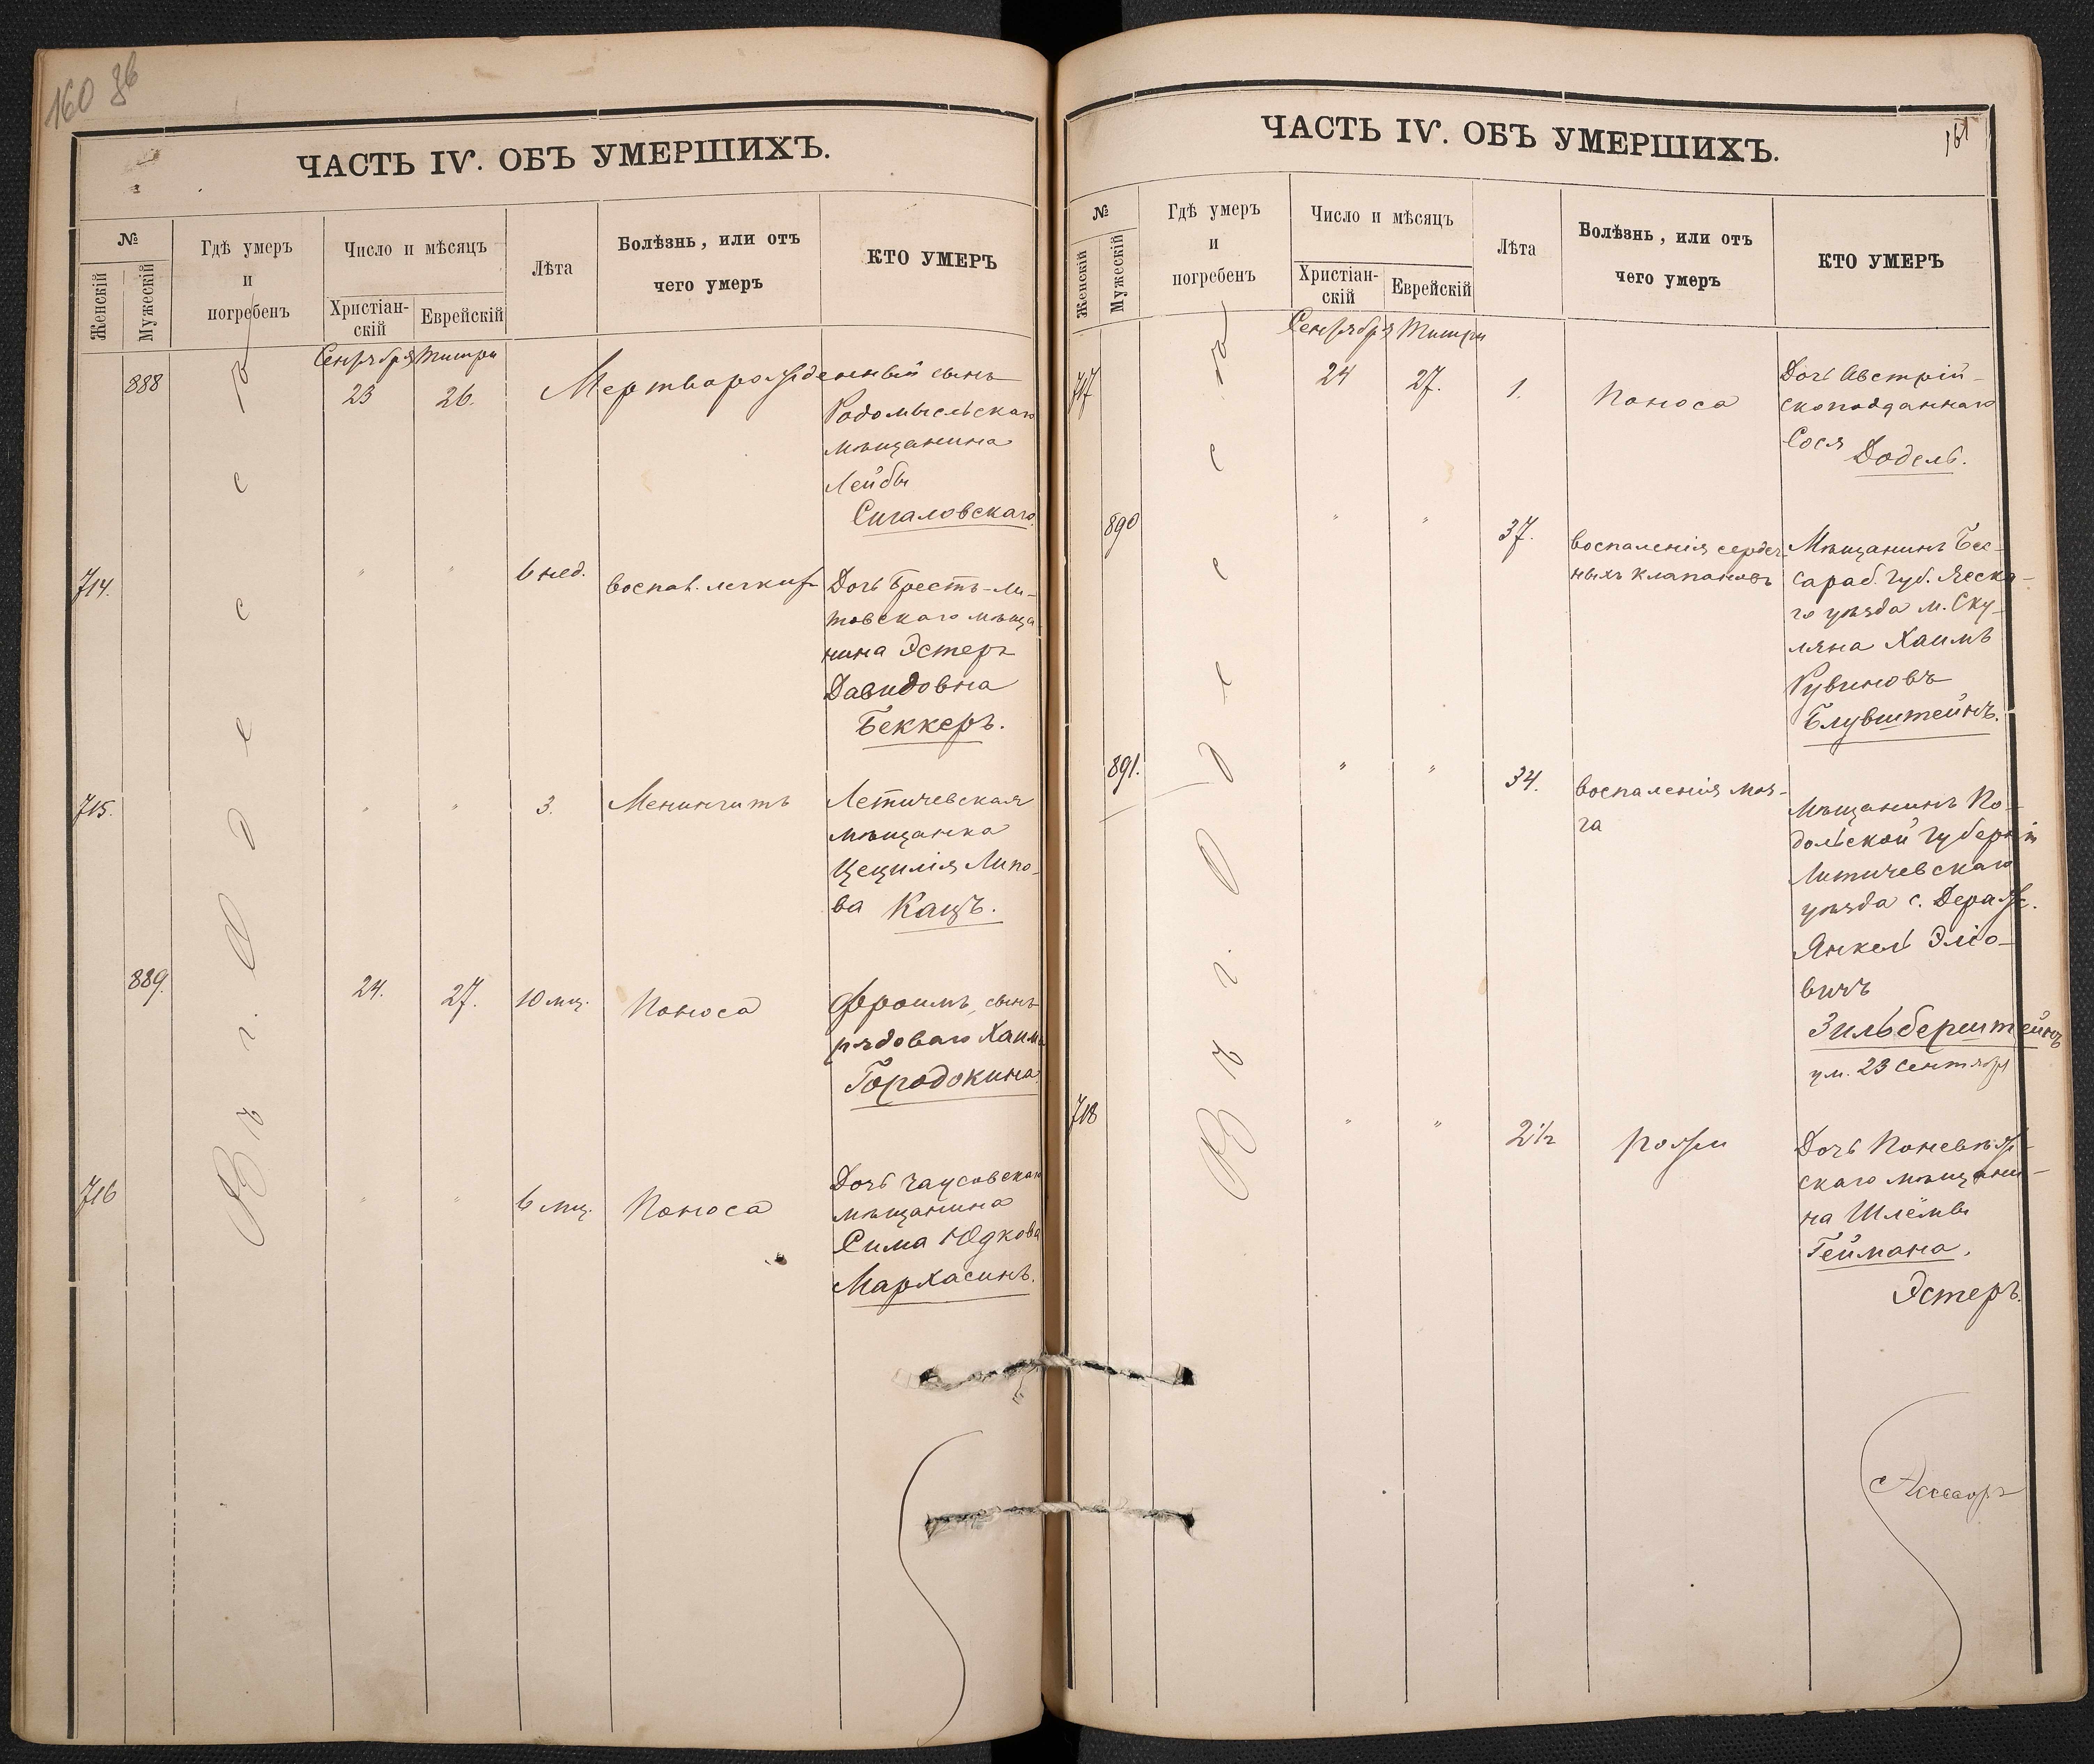 160 зв
ЧАСТЬ IV. ОБЪ УМЕРШИХЪ.
№
Женскій
Мужескій
Гдѣ умеръ
и
погребенъ
Число и мѣсяцъ
Христіан-
скій
Еврейскій
Лѣта
Болѣзнь, или отъ
чего умеръ
КТО УМЕРЪ
Въ г. Одессѣ
Сентября Тишри
888
23
26.
Мертворожденный сынъ
Радомысльскаго
мѣщанина
Лейбы
Сигаловскаго.
714.
"
"
6 нед.
воспал. легких
Дочь Брестъ-Ли-
товскаго мѣща-
нина Эстеръ
Давидовна
Беккеръ.
715.
"
"
3.
Менингитъ
Летичевская
мѣщанка
Цецилія Липо-
ва Кацъ.
889.
24.
27.
10 мц.
Поноса
Фроимъ, сынъ
рядоваго Хаима
Городокина.
716
"
"
6 мц.
Поноса
Дочь Чаусовскаго
мѣщанина
Сима Юдкова
Мархасинъ.
161
ЧАСТЬ IV. ОБЪ УМЕРШИХЪ.
№
Женскій
Мужескій
Гдѣ умеръ
и
погребенъ
Число и мѣсяцъ
Христіан-
скій
Еврейскій
Лѣта
Болѣзнь, или отъ
чего умеръ
КТО УМЕРЪ
Въ г. Одессѣ
Сентября Тишри
717
24
27.
1.
Поноса
Дочь Австрій-
скоподданнаго
Сося
Додель.
890
"
"
37.
воспаленія сердеч-
ныхъ клапановъ
Мѣщанинъ Бес-
сараб. губ. Яеска-
го уѣзда м. Ску-
ляна Хаимъ
Рувиновъ
Блувштейнъ.
891.
"
"
34.
воспаленія моз-
га
Мѣщанинъ По-
дольской губерніи
Литичевскаго
уѣзда с. Дераж.
Янкель Эліо-
вичъ
Зильберштейнъ
ум. 23 Сентября
718
"
"
2 1/2
рожи
Дочь Поневѣж-
скаго мѣщани-
на Шлёмы
Геймана.
Эстеръ.